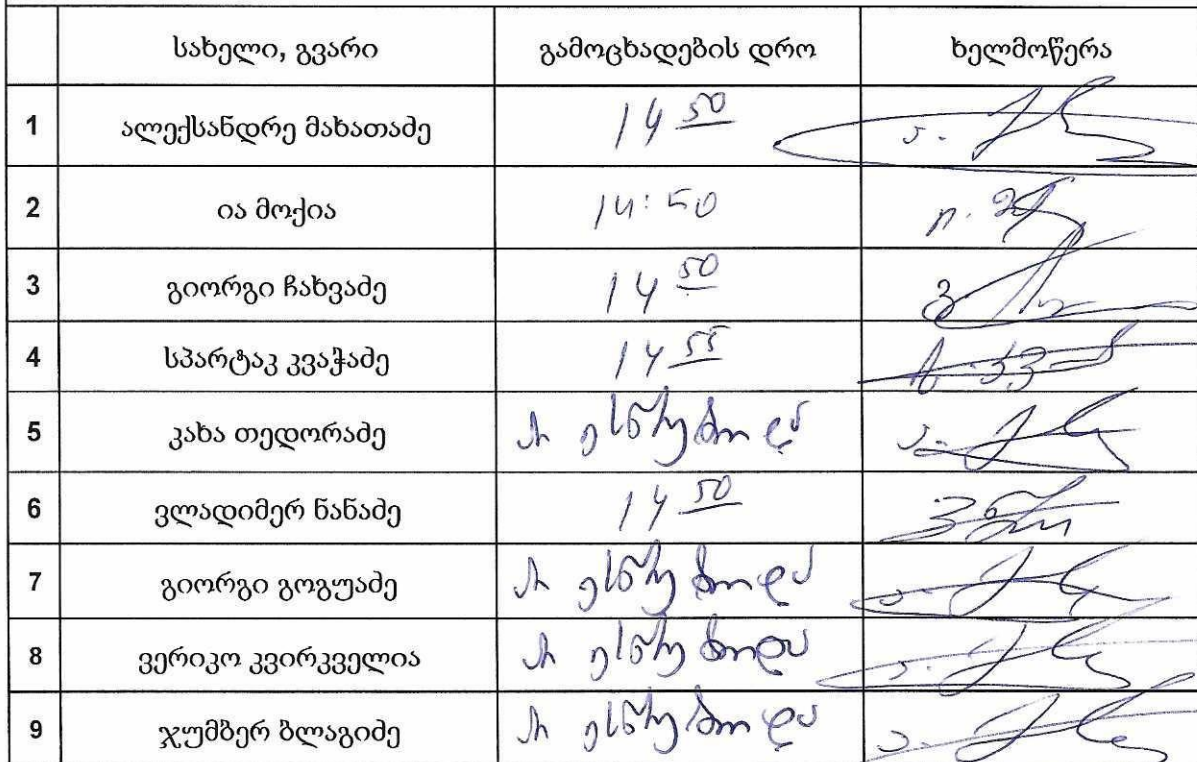 სახელი, გვარი გამოცხადების დრო ხელმოწერა
1 ალექსანდრე მახათაძე 14 50
2 ია მოქია 14:50
3 გიორგი ჩახვაძე 14 50
4 სპარტაკ კვაჭაძე 14 55
5 კახა თედორაძე არ ესწრებოდა
6 ვლადიმერ ნანაძე 14 50
7 გიორგი გოგუაძე არ ესწრებოდა
8 ვერიკო კვირკველია არ ესწრებოდა
9 ჯუმბერ ბლაგიძე არ ესწრებოდა